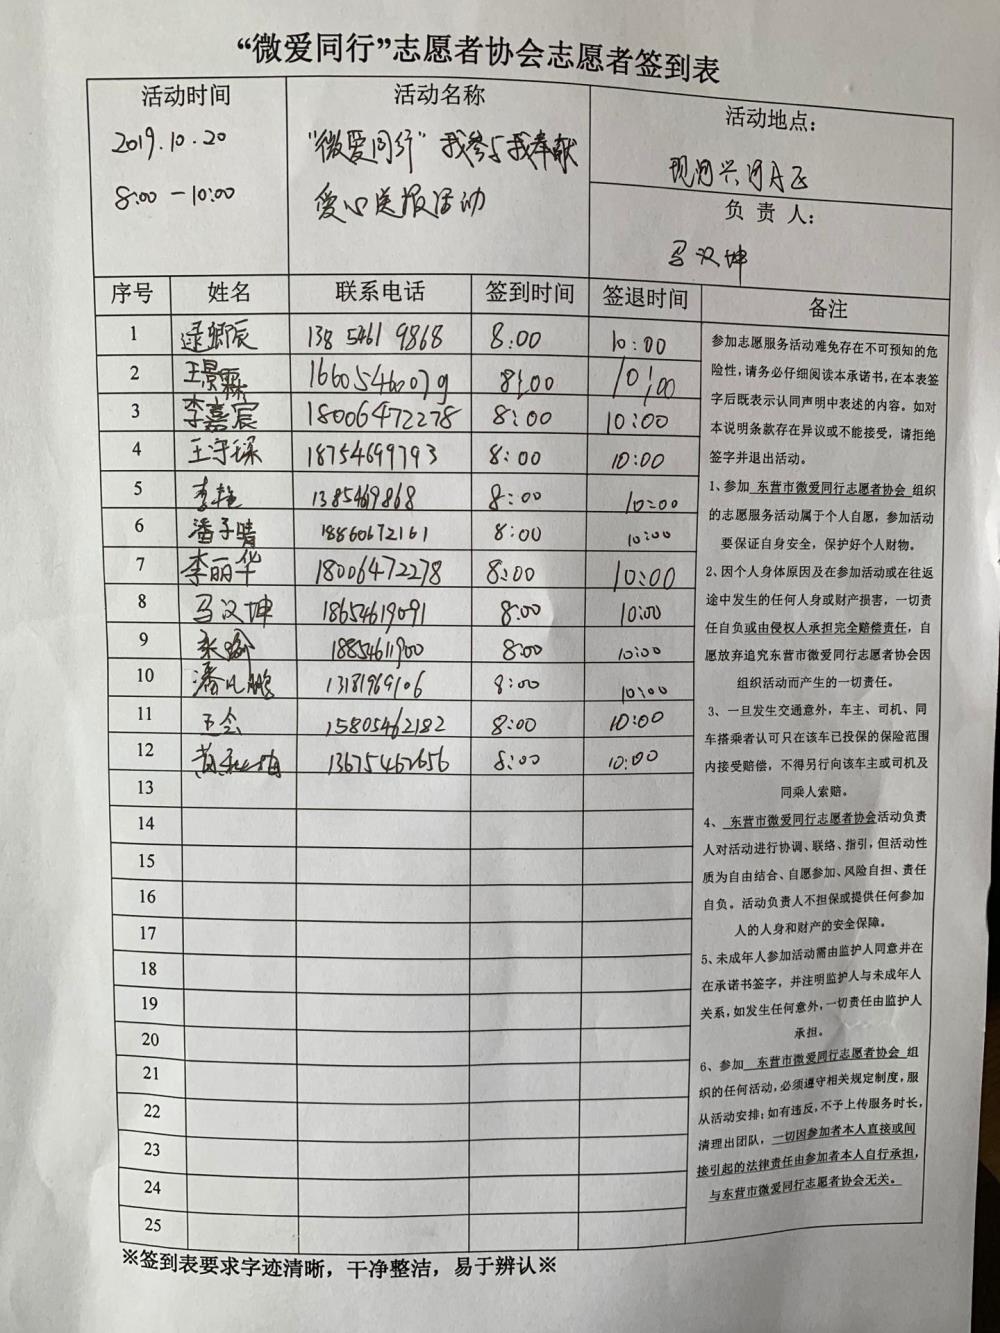 “微爱同行”志愿者协会志愿者签到表
活动时间
2019.10.20
8:00—10:00
活动名称
“微爱同行”我参与我奉献
爱心送报活动
活动地点：
现河兴河社区
负 责 人：
马汉坤
序号 姓名 联系电话 签到时间 签退时间 备注
1 逯卿辰 138 5461 9868 8:00 10:00
2 王景霖 16605460079 8:00 10:00
3 李嘉宸 18006472278 8:00 10:00
4 王守琛 18754699793 8:00 10:00
5 李艳 1385469868 8:00 10:00
6 潘子晴 18860672161 8:00 10:00
7 李丽华 18006472278 8:00 10:00
8 马汉坤 18654619091 8:00 10:00
9 18854611900 8:00 10:00
10 潘凡鹏 13181969106 8:00 10:00
11 王会 15805462182 8:00 10:00
12 13675462656 8:00 10:00
13
14
15
16
17
18
19
20
21
22
23
24
25
参加志愿服务活动难免存在不可预知的危
险性，请务必仔细阅读本承诺书，在本表签
字后既表示认同声明中表述的内容。如对
本说明条款存在异议或不能接受，请拒绝
签字并退出活动。
1、参加 东营市微爱同行志愿者协会 组织
的志愿服务活动属于个人自愿，参加活动
要保证自身安全，保护好个人财物。
2、因个人身体原因及在参加活动或在往返
途中发生的任何人身或财产损害，一切责
任自负或由侵权人承担完全赔偿责任，自
愿放弃追究东营市微爱同行志愿者协会因
组织活动而产生的一切责任。
3、一旦发生交通意外，车主、司机、同
车搭乘者认可只在该车已投保的保险范围
内接受赔偿，不得另行向该车主或司机及
同乘人索赔。
4、 东营市微爱同行志愿者协会活动负责
人对活动进行协调、联络、指引，但活动性
质为自由结合、自愿参加、风险自担、责任
自负。活动负责人不担保或提供任何参加
人的人身和财产的安全保障。
5、未成年人参加活动需由监护人同意并在
在承诺书签字，并注明监护人与未成年人
关系，如发生任何意外，一切责任由监护人
承担。
6、参加 东营市微爱同行志愿者协会 组
织的任何活动，必须遵守相关规定制度，服
从活动安排；如有违反，不予上传服务时长，
清理出团队，一切因参加者本人直接或间
接引起的法律责任由参加者本人自行承担，
与东营市微爱同行志愿者协会无关。
※签到表要求字迹清晰，干净整洁，易于辨认※